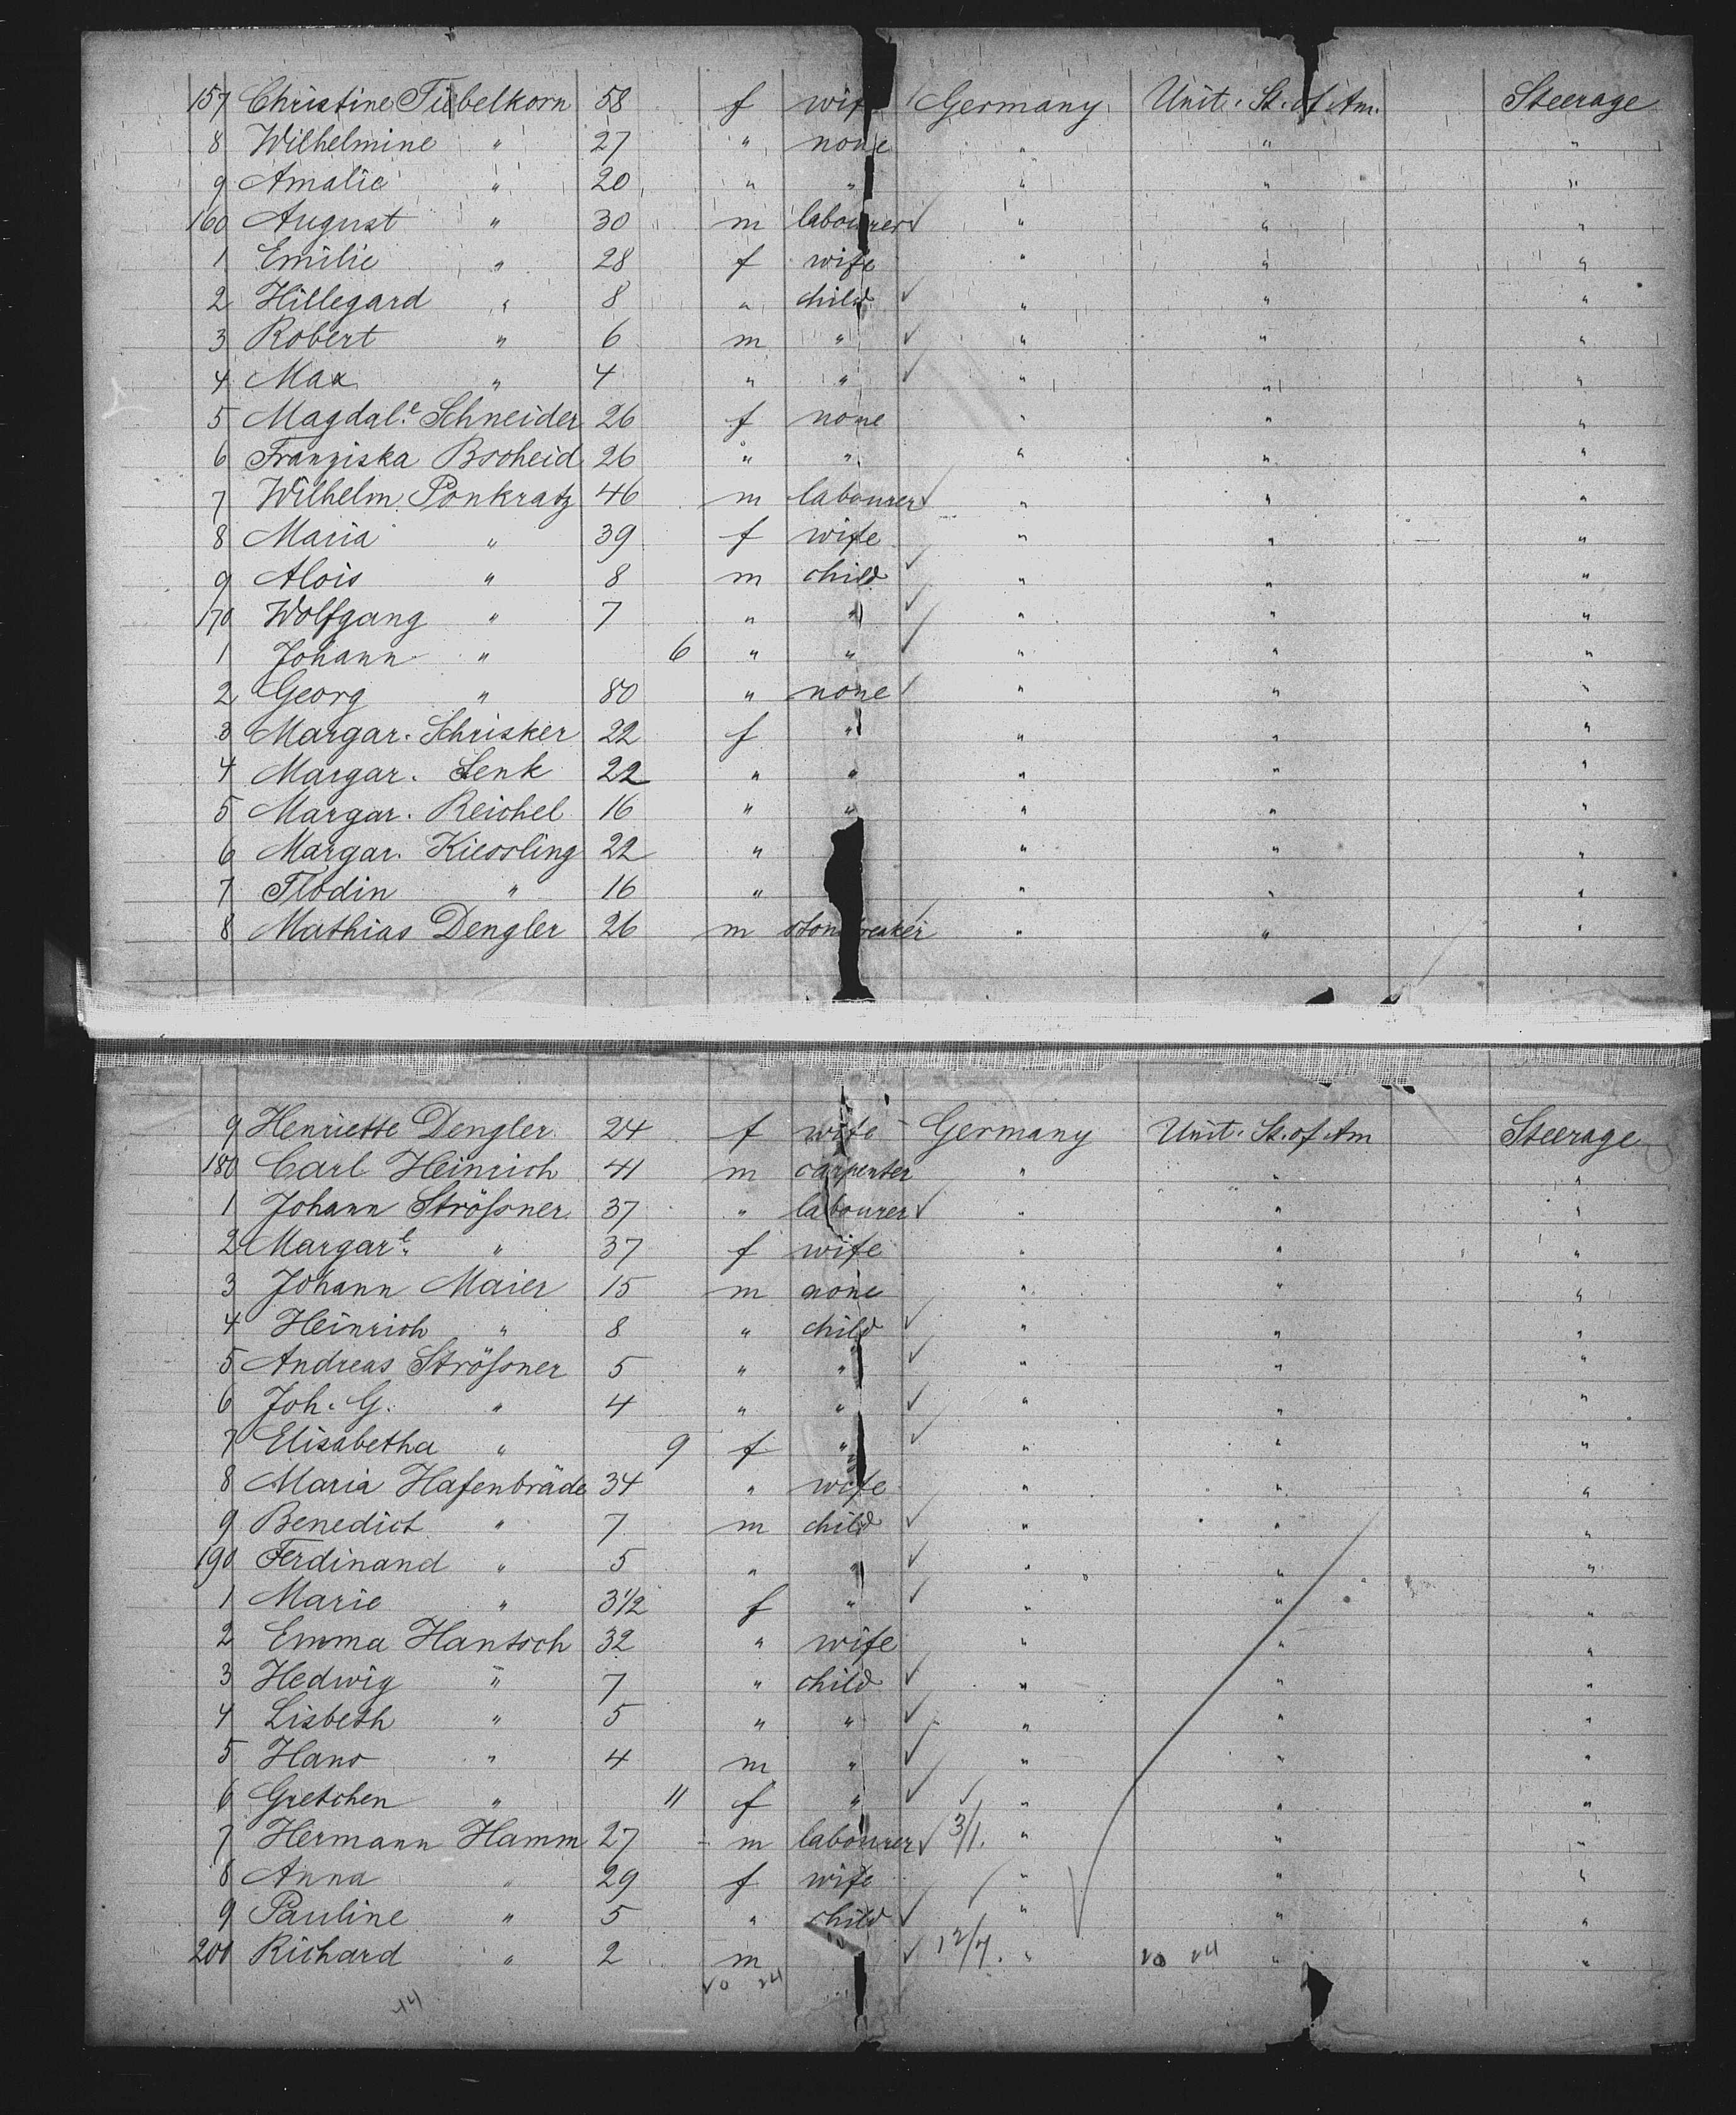 157 Christine Tiebelkorn 58 f wife Germany Unit. St. of Am. Steerage
8 Wilhelmine " 27 " none " " "
9 Amalie " 20 " " " " "
160 August " 30 m labourer " " "
1 Emilie " 28 f wife " " "
2 Hillegard " 8 " child " " "
3 Robert " 6 m " " " "
4 Max " 4 " " " " "
5 Magdal.e Schneider 26 f none " " "
6 Franziska Broheid 26 " " " " "
7 Wilhelm Ponkratz 46 m labourer " " "
8 Maria " 39 f wife " " "
9 Alois " 8 m child " " "
170 Wolfgang " 7 " " " " "
1 Johann " 6 " " " " "
2 Georg " 80 " none " " "
3 Margar. Schrisker 22 f " " " "
4 Margar. Senk 22 " " " " "
5 Margar. Reichel 16 " " " " "
6 Margar. Kiessling 22 " " " "
7 Flodin " 16 " " " "
8 Mathias Dengler 26 m stonebreaker " " "
9 Henriette Dengler 24 f wife Germany Unit. St. of Am Steerage
180 Carl Heinrich 41 m carpenter " " "
1 Johann Strößner 37 " labourer " " "
2 Margar.e " 37 f wife " " "
3 Johann Maier 15 m none " " "
4 Heinrich " 8 " child " " "
5 Andreas Strößner 5 " " " " "
6 Joh. G. " 4 " " " " "
7 Elisabetha " 9 f " " " "
8 Maria Hafenbräde 34 " wife " " "
9 Benedict " 7 m child " " "
190 Ferdinand " 5 " " " " "
1 Marie " 3 1/2 f " " " "
2 Emma Hantsch 32 " wife " " "
3 Hedwig " 7 " child " " "
4 Lisbeth " 5 " " " " "
5 Hans " 4 m " " " "
6 Gretchen " 11 f " " " "
7 Hermann Hamm 27 m labourer 3/1. " " "
8 Anna " 29 f wife " " "
9 Pauline " 5 " child " " "
200 Richard " 2 m " 12/7. " 20 24 " "
20 24
44